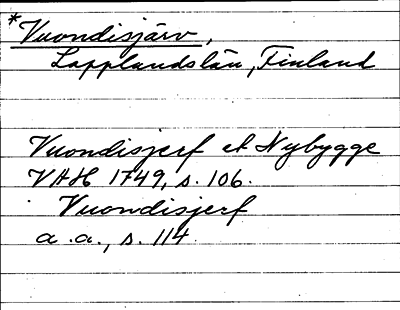 *Vuondisjärv,
Lapplandslän, Finland
Vuondisjerf et Nybygge
VAH 1749, s. 106.
Vuondisjerf
a.a., s. 114